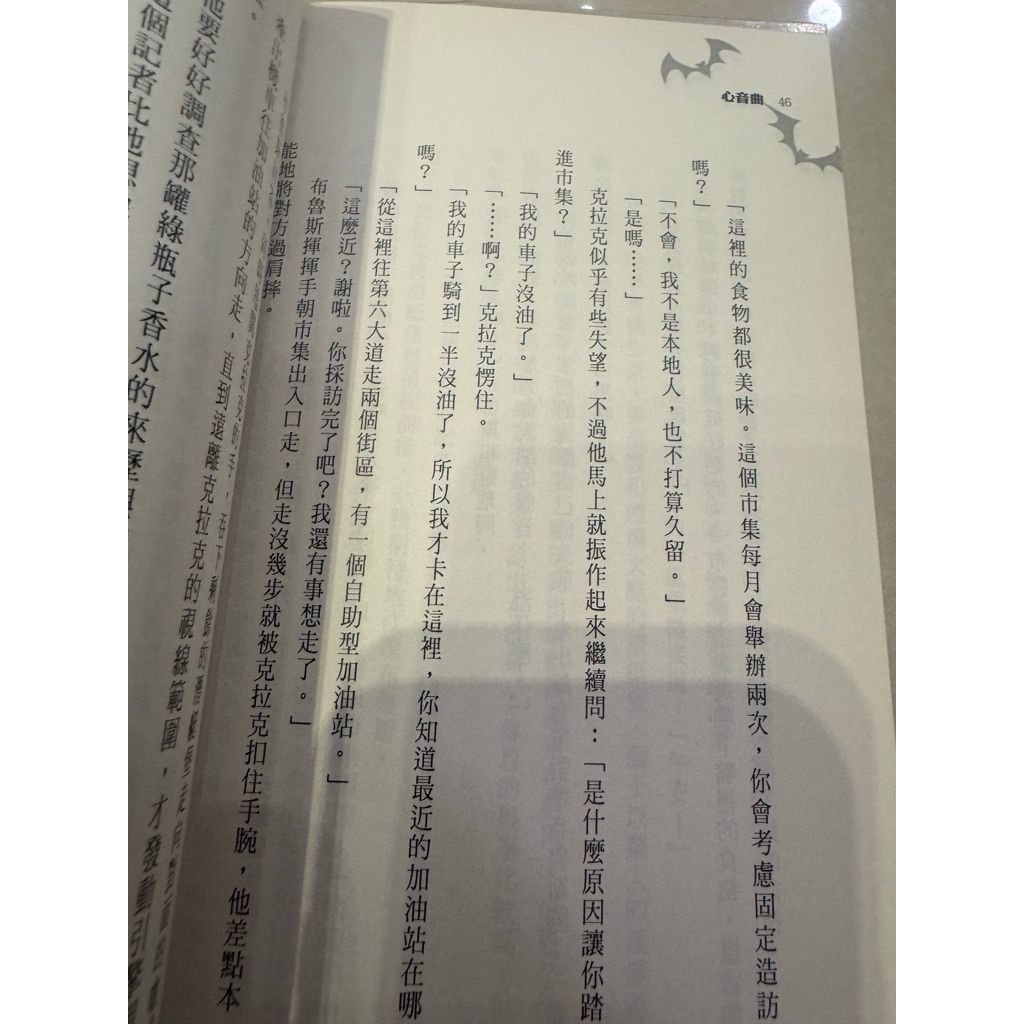 心音曲 46
「這裡的食物都很美味。這個市集每月會舉辦兩次，你會考慮固定造訪
嗎？」
「不會，我不是本地人，也不打算久留。」
「是嗎……」
克拉克似乎有些失望，不過他馬上就振作起來繼續問：「是什麼原因讓你踏
進市集？」
「我的車子沒油了。」
「……啊？」克拉克愣住。
「我的車子騎到一半沒油了，所以我才卡在這裡，你知道最近的加油站在哪
嗎？」
「從這裡往第六大道走兩個街區，有一個自助型加油站。」
「這麼近？謝啦。你採訪完了吧？我還有事想走了。」
布魯斯揮揮手朝市集出入口走，但走沒幾步就被克拉克扣住手腕，他差點本
能地將對方過肩摔。
往加油站的方向走，直到遠離克拉克的視線範圍，才發動引擎
他要好好調查那罐綠瓶子香水的來歷
這個記者比他想